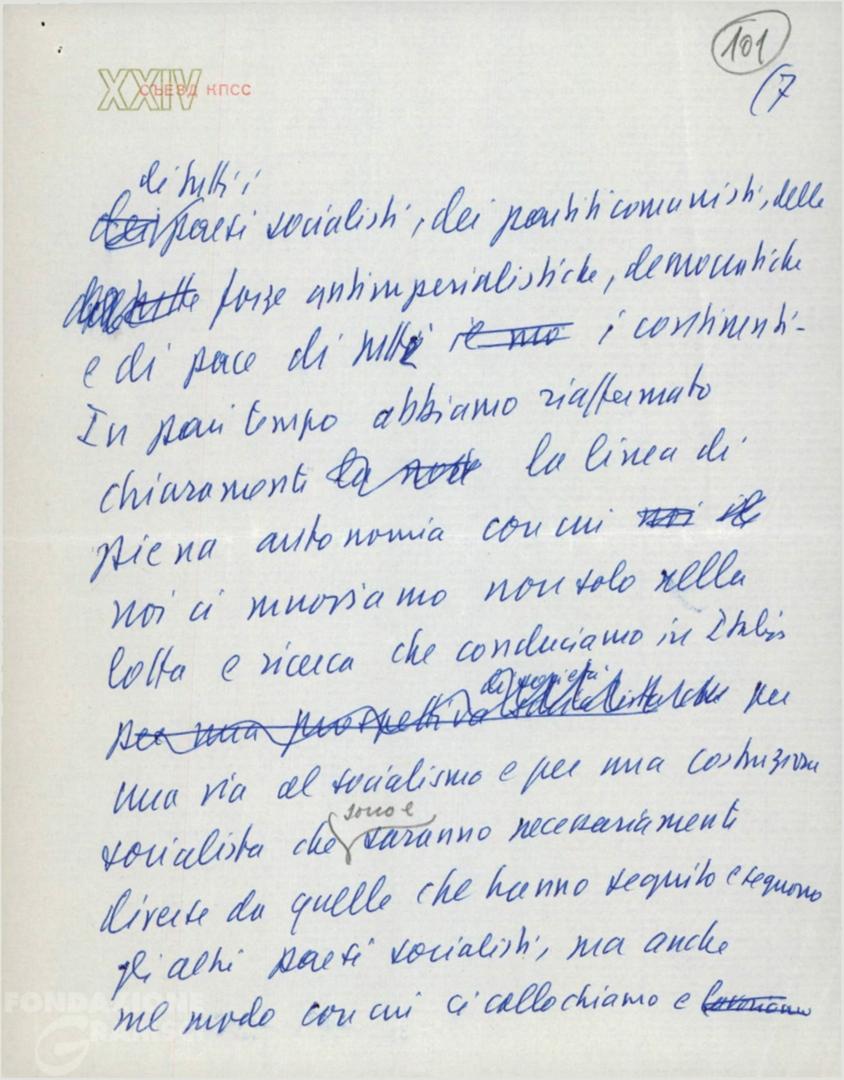 101
(7
XXIV СЪЕЗД КПСС
di tutti i
dei paesi socialisti, dei partiti comunisti, delle
tutte forze antimperialistiche, democratiche
e di pace di tutti il mo i continenti.
In pari tempo abbiamo riaffermato
chiaramente la la linea di
piena autonomia con cui noi il
noi ci muoviamo non solo nella
lotta e ricerca che conduciamo in Italia
per una prospettiva per
una via al socialismo e per una costruzione
sono e
socialista che saranno necessariamente
diverse da quelle che hanno seguito e seguono
gli altri paesi socialisti, ma anche
nel modo con cui ci collochiamo e lavoriamo
FONDAZIONE
GRAMSCI